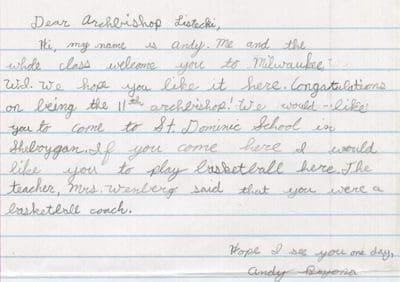 Dear Archbishop Listecki,
Hi, my name is Andy. Me and the
whole class welcome you to Milwaukee
W.I. We hope you like it here. Congatulations
on being the 11th archbishop! We would like
you to come to St. Dominic School in
Sheboygan. If you come here I would
like you to play basketball here. The
teacher, Mrs. Wenberg said that you were a
basketball coach.
Hope I see you one day,
Andy